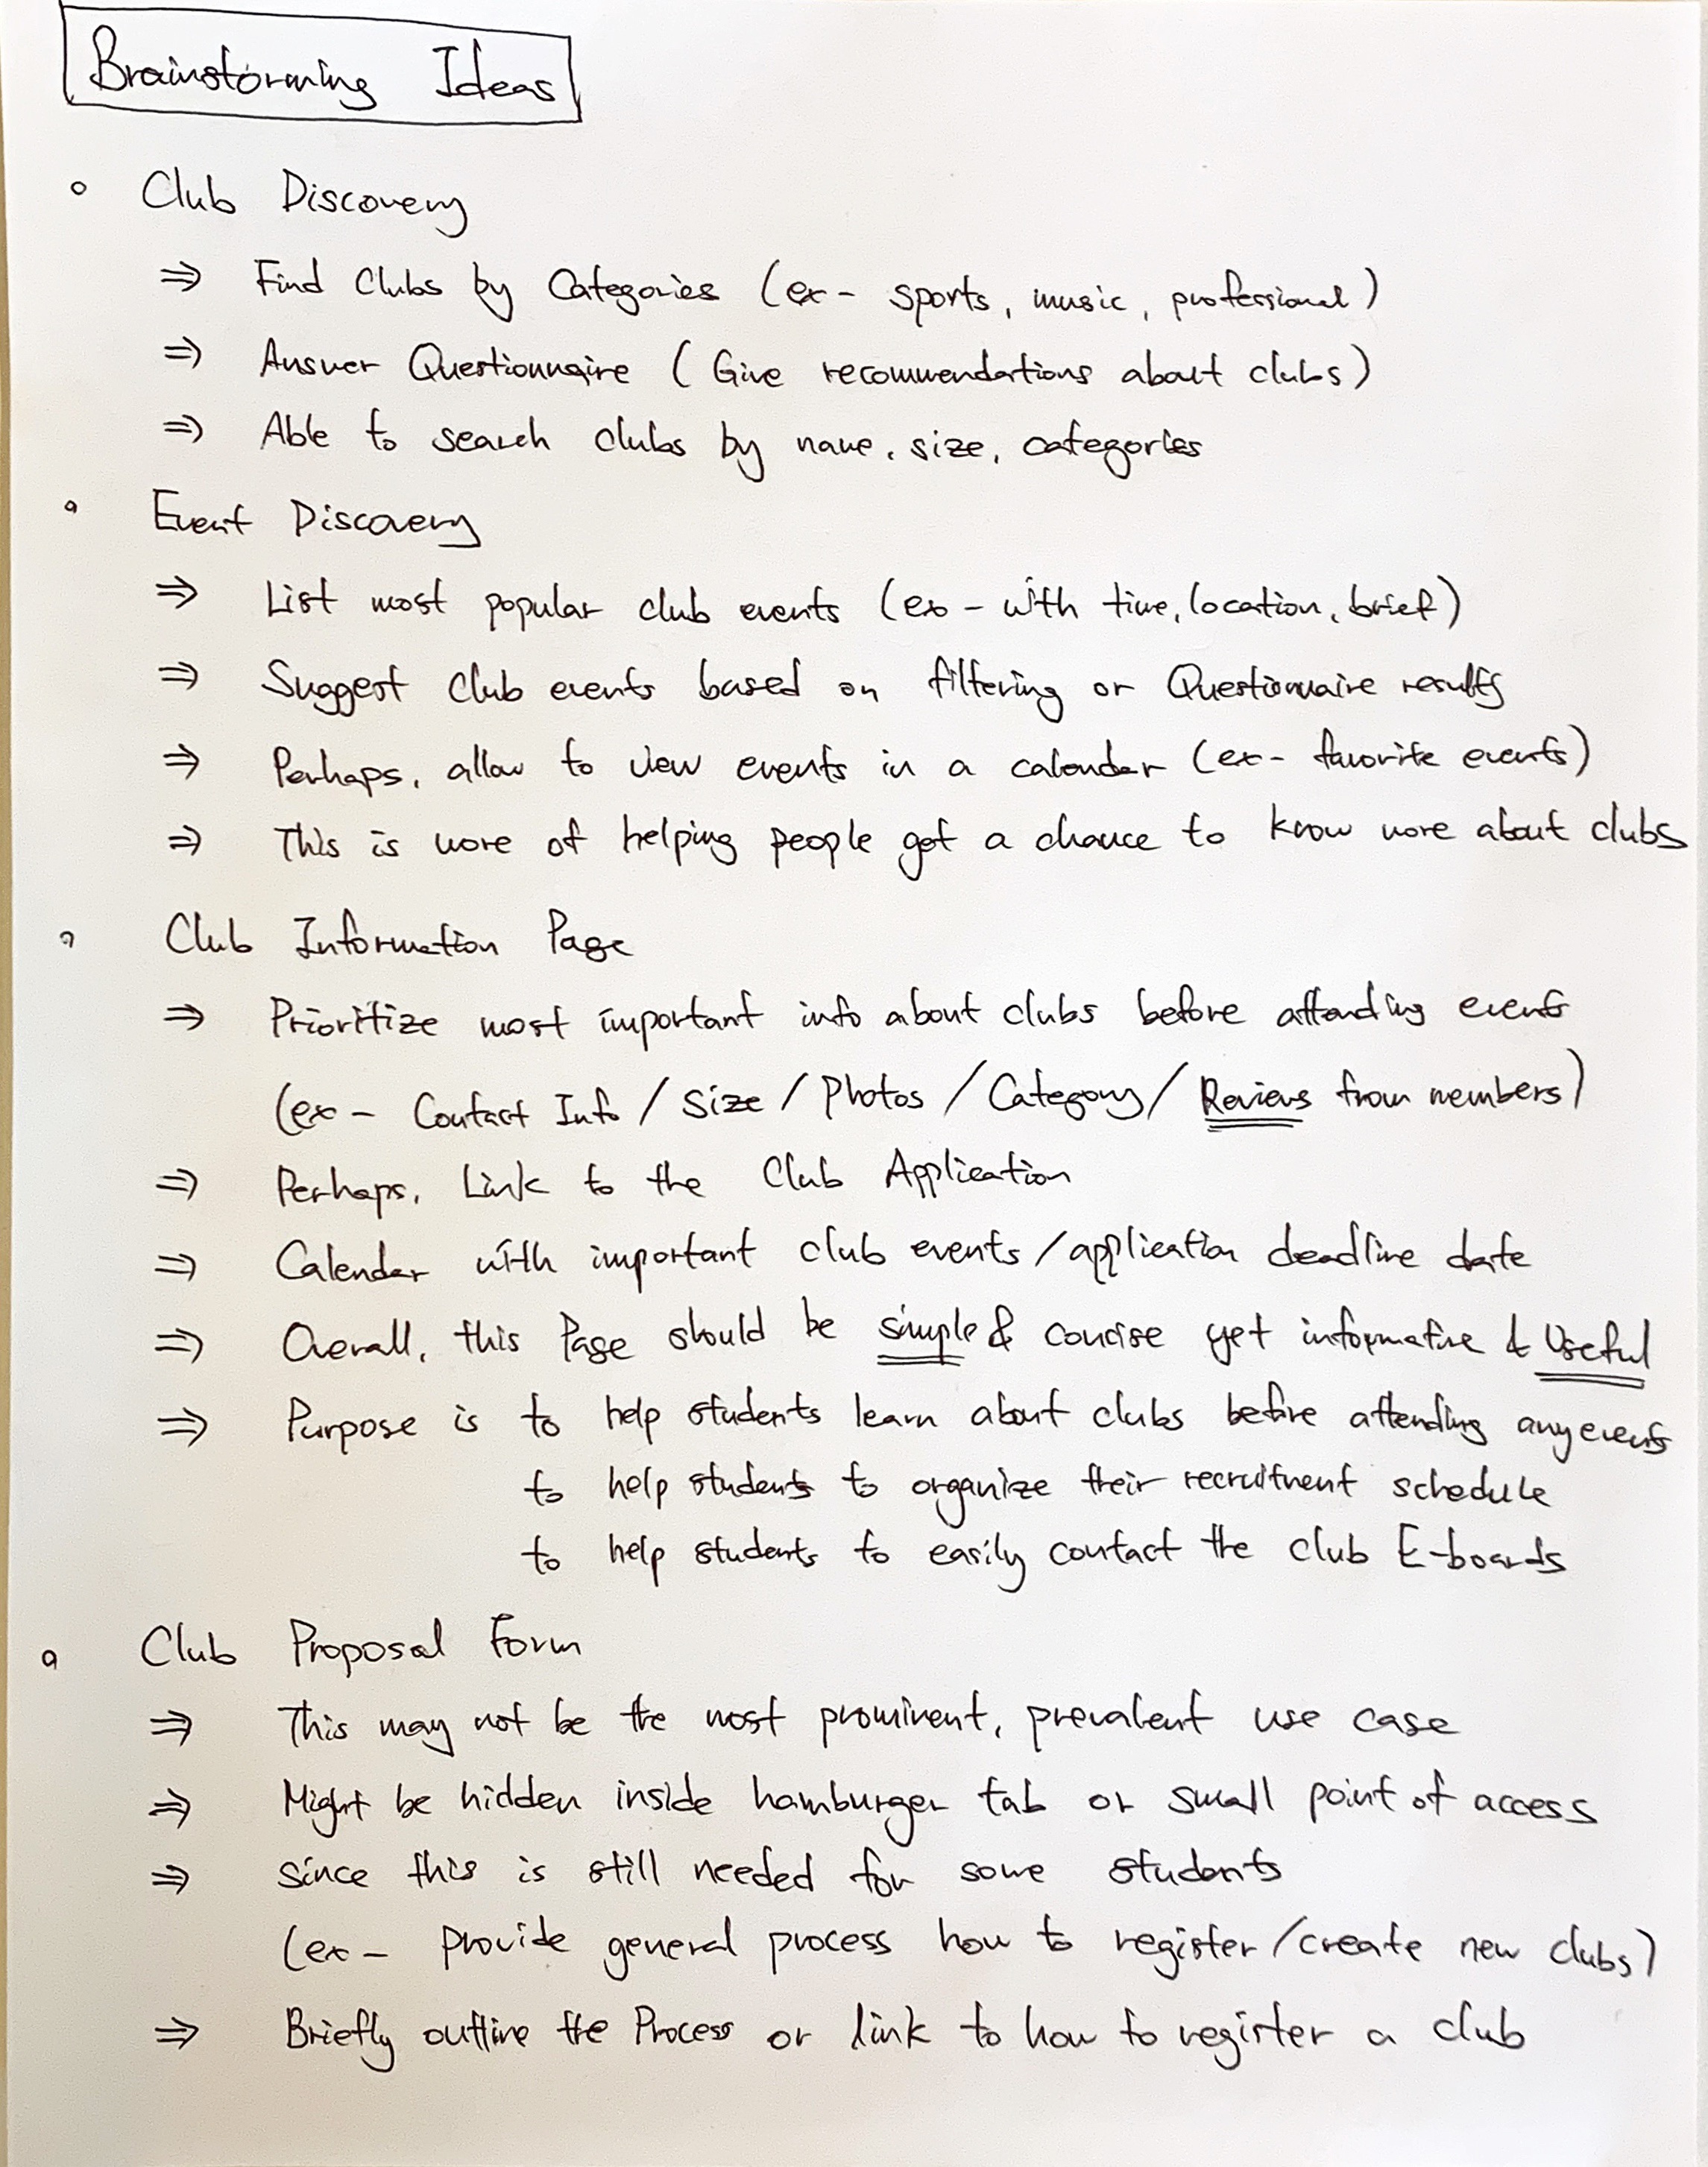 Brainstorming Ideas
◦ Club Discovery
⇒ Find Clubs by Categories (ex- sports, music, professional)
⇒ Answer Questionnaire (Give recommendations about clubs)
⇒ Able to search clubs by name, size, categories
◦ Event Discovery
⇒ List most popular club events (ex - with time, location, brief)
⇒ Suggest Club events based on filtering or Questionnaire results
⇒ Perhaps, allow to view events in a calendar (ex- favorite events)
⇒ This is more of helping people get a chance to know more about clubs
◦ Club Information Page
⇒ Prioritize most important info about clubs before attending events
(ex - Contact Info / Size / Photos / Category / Reviews from members)
⇒ Perhaps, Link to the Club Application
⇒ Calendar with important club events/application deadline date
⇒ Overall, this Page should be simple & concise yet informative & Useful
⇒ Purpose is to help students learn about clubs before attending any events
to help students to organize their recruitment schedule
to help students to easily contact the club E-boards
◦ Club Proposal Form
⇒ This may not be the most prominent, prevalent use case
⇒ Might be hidden inside hamburger tab or small point of access
⇒ since this is still needed for some students
(ex - provide general process how to register/create new clubs)
⇒ Briefly outline the Process or link to how to register a club